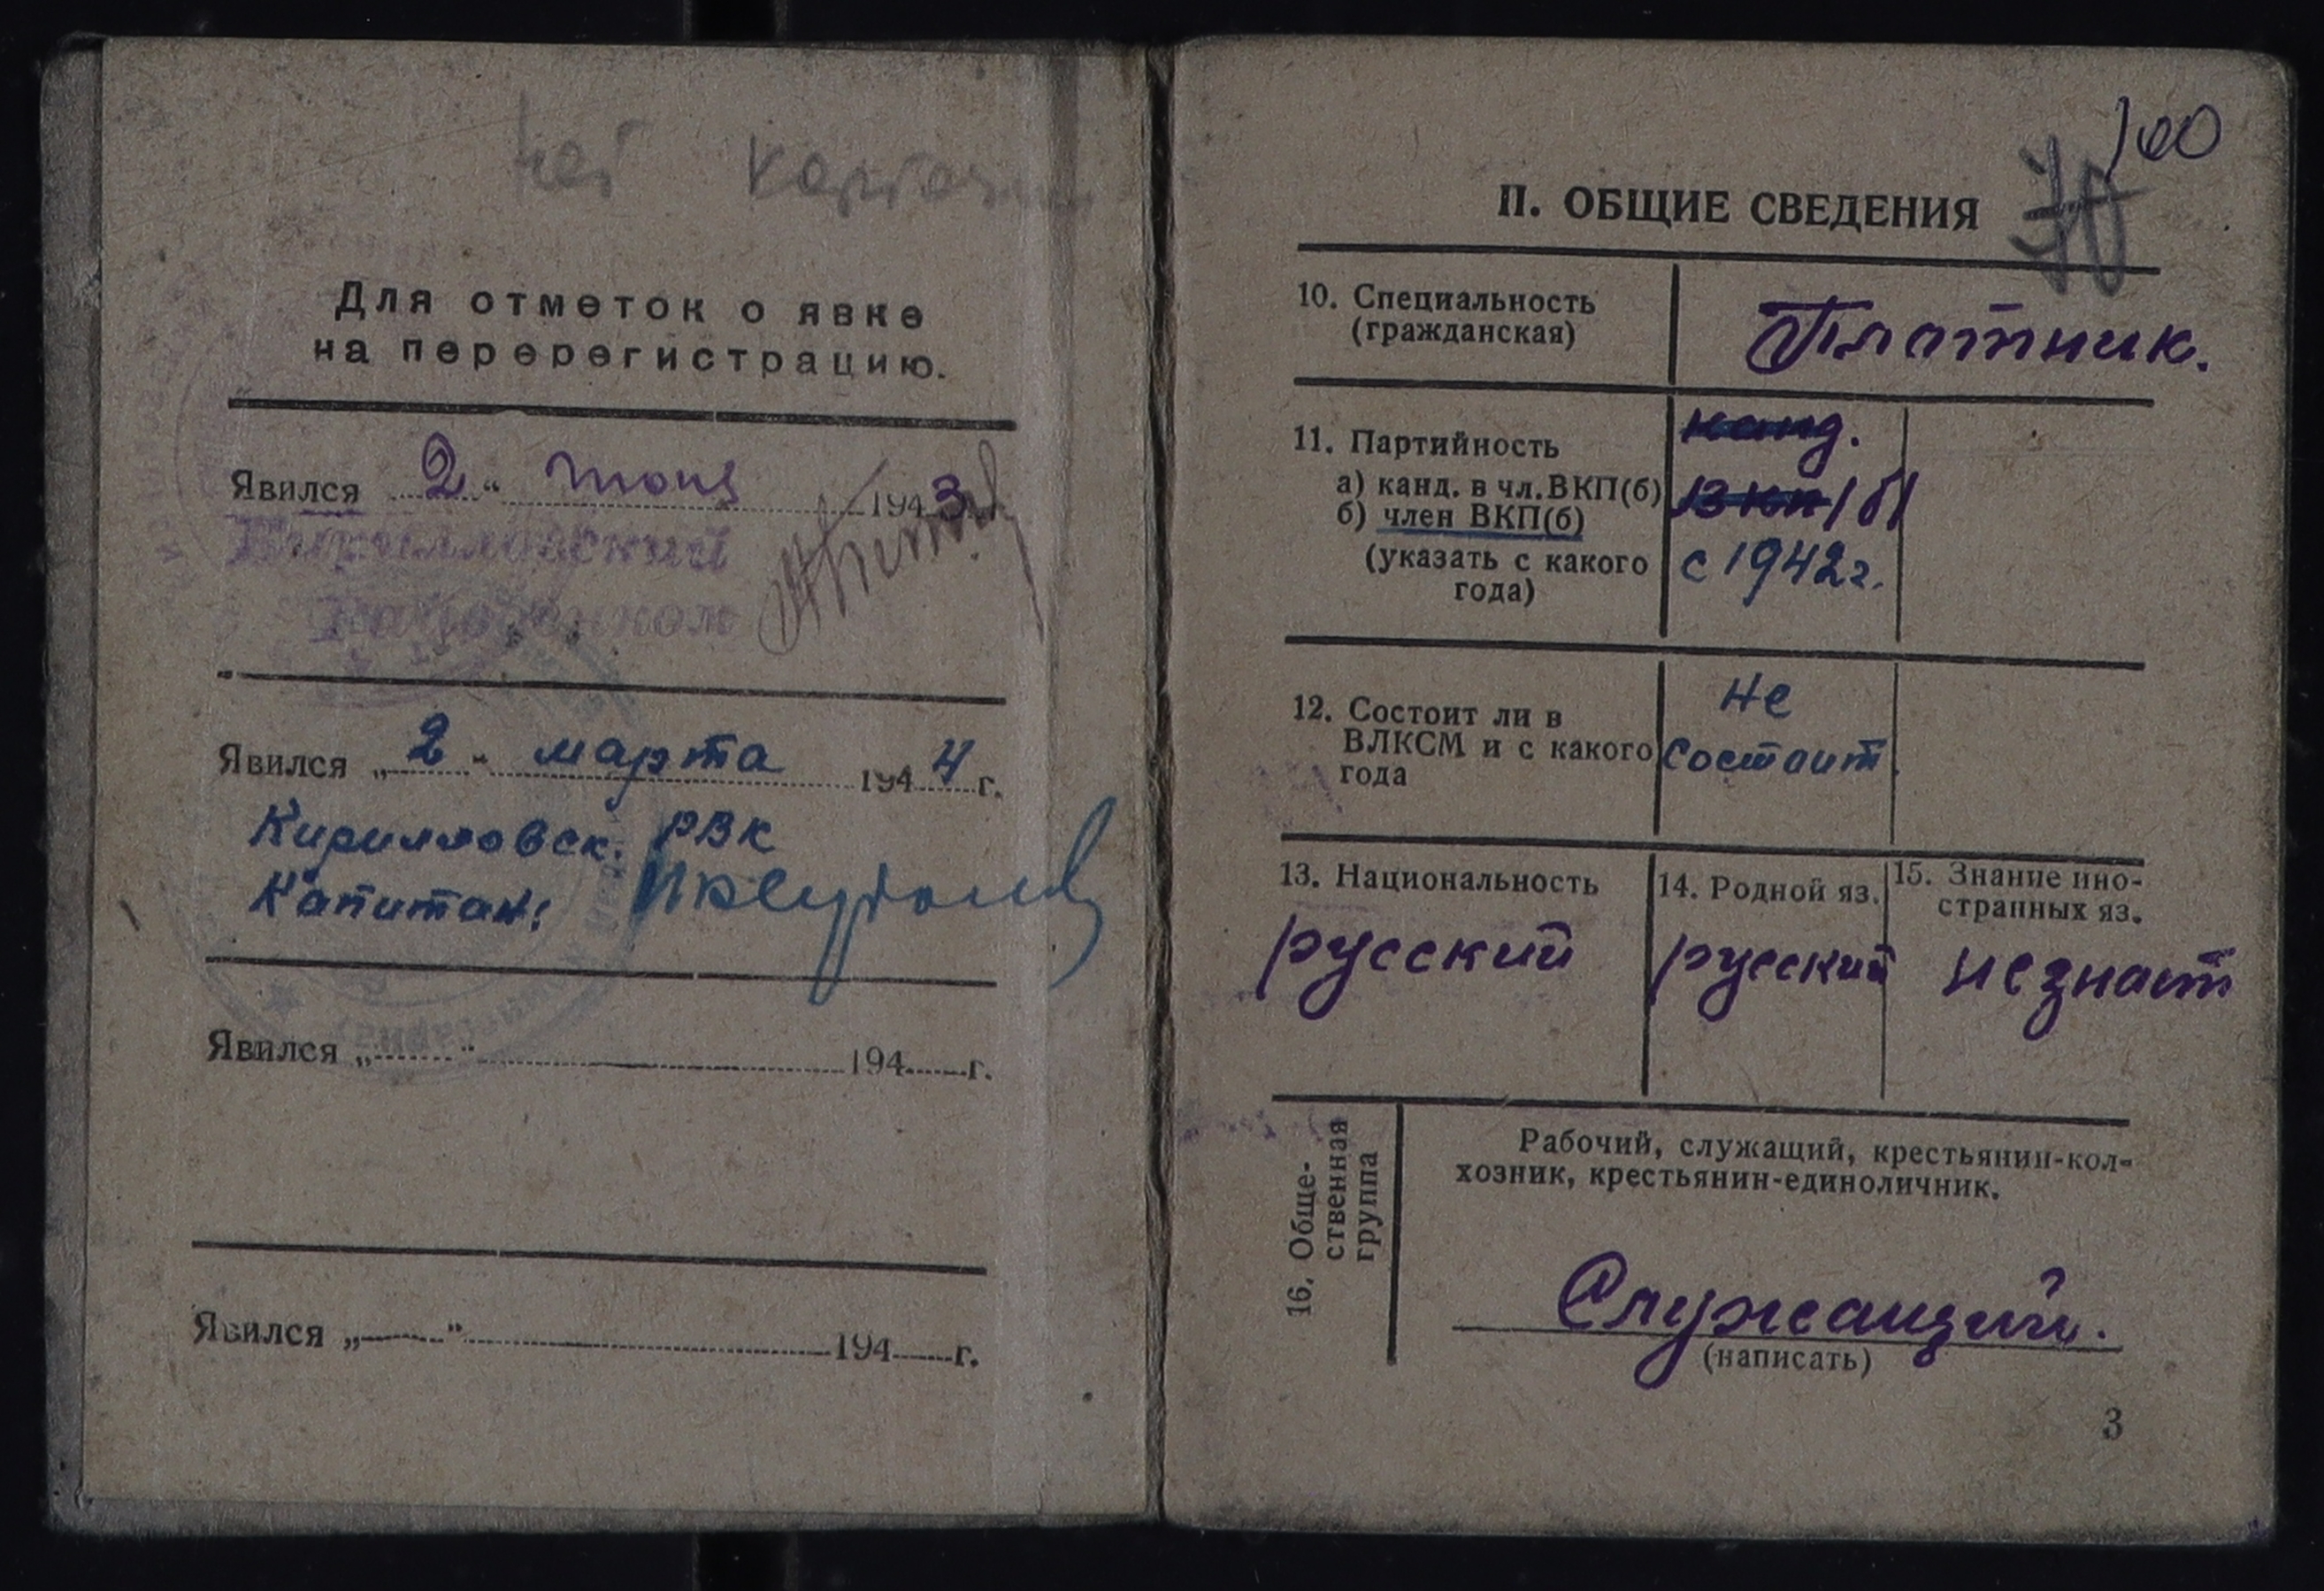 нет карточки
Для отметок о явке
на перерегистрацию.
Явился 2 " июня 1943
Кирилловский
Райвоенком
Явился „ 2 " марта 194 4 г.
Кирилловск. РВК
Капитан:
Явился „ " 194 г.
Явился „ " 194 г.
100
70
II. ОБЩИЕ СВЕДЕНИЯ
10. Специальность
(гражданская)
Плотник.
11. Партийность
а) канд. в чл. ВКП(б)
б) член ВКП(б)
(указать с какого
года)
канд.
ВКП/б/
с 1942 г.
12. Состоит ли в
ВЛКСМ и с какого
года
не
состоит
13. Национальность
русский
14. Родной яз.
русский
15. Знание ино-
странных яз.
не знает
16. Обще-
ственная
группа
Рабочий, служащий, крестьянин-кол-
хозник, крестьянин-единоличник.
Служащий.
(написать)
3